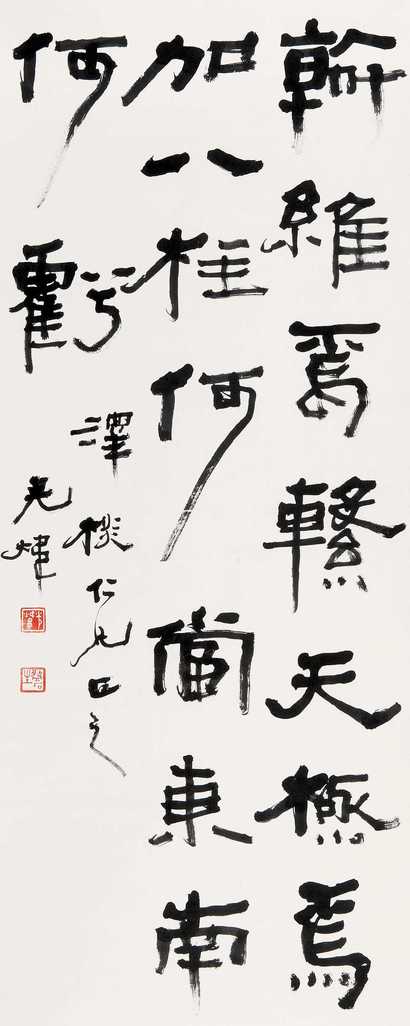 斡維焉繫天極焉
加八柱何當東南
何虧
澤楸仁兄正之
光煒